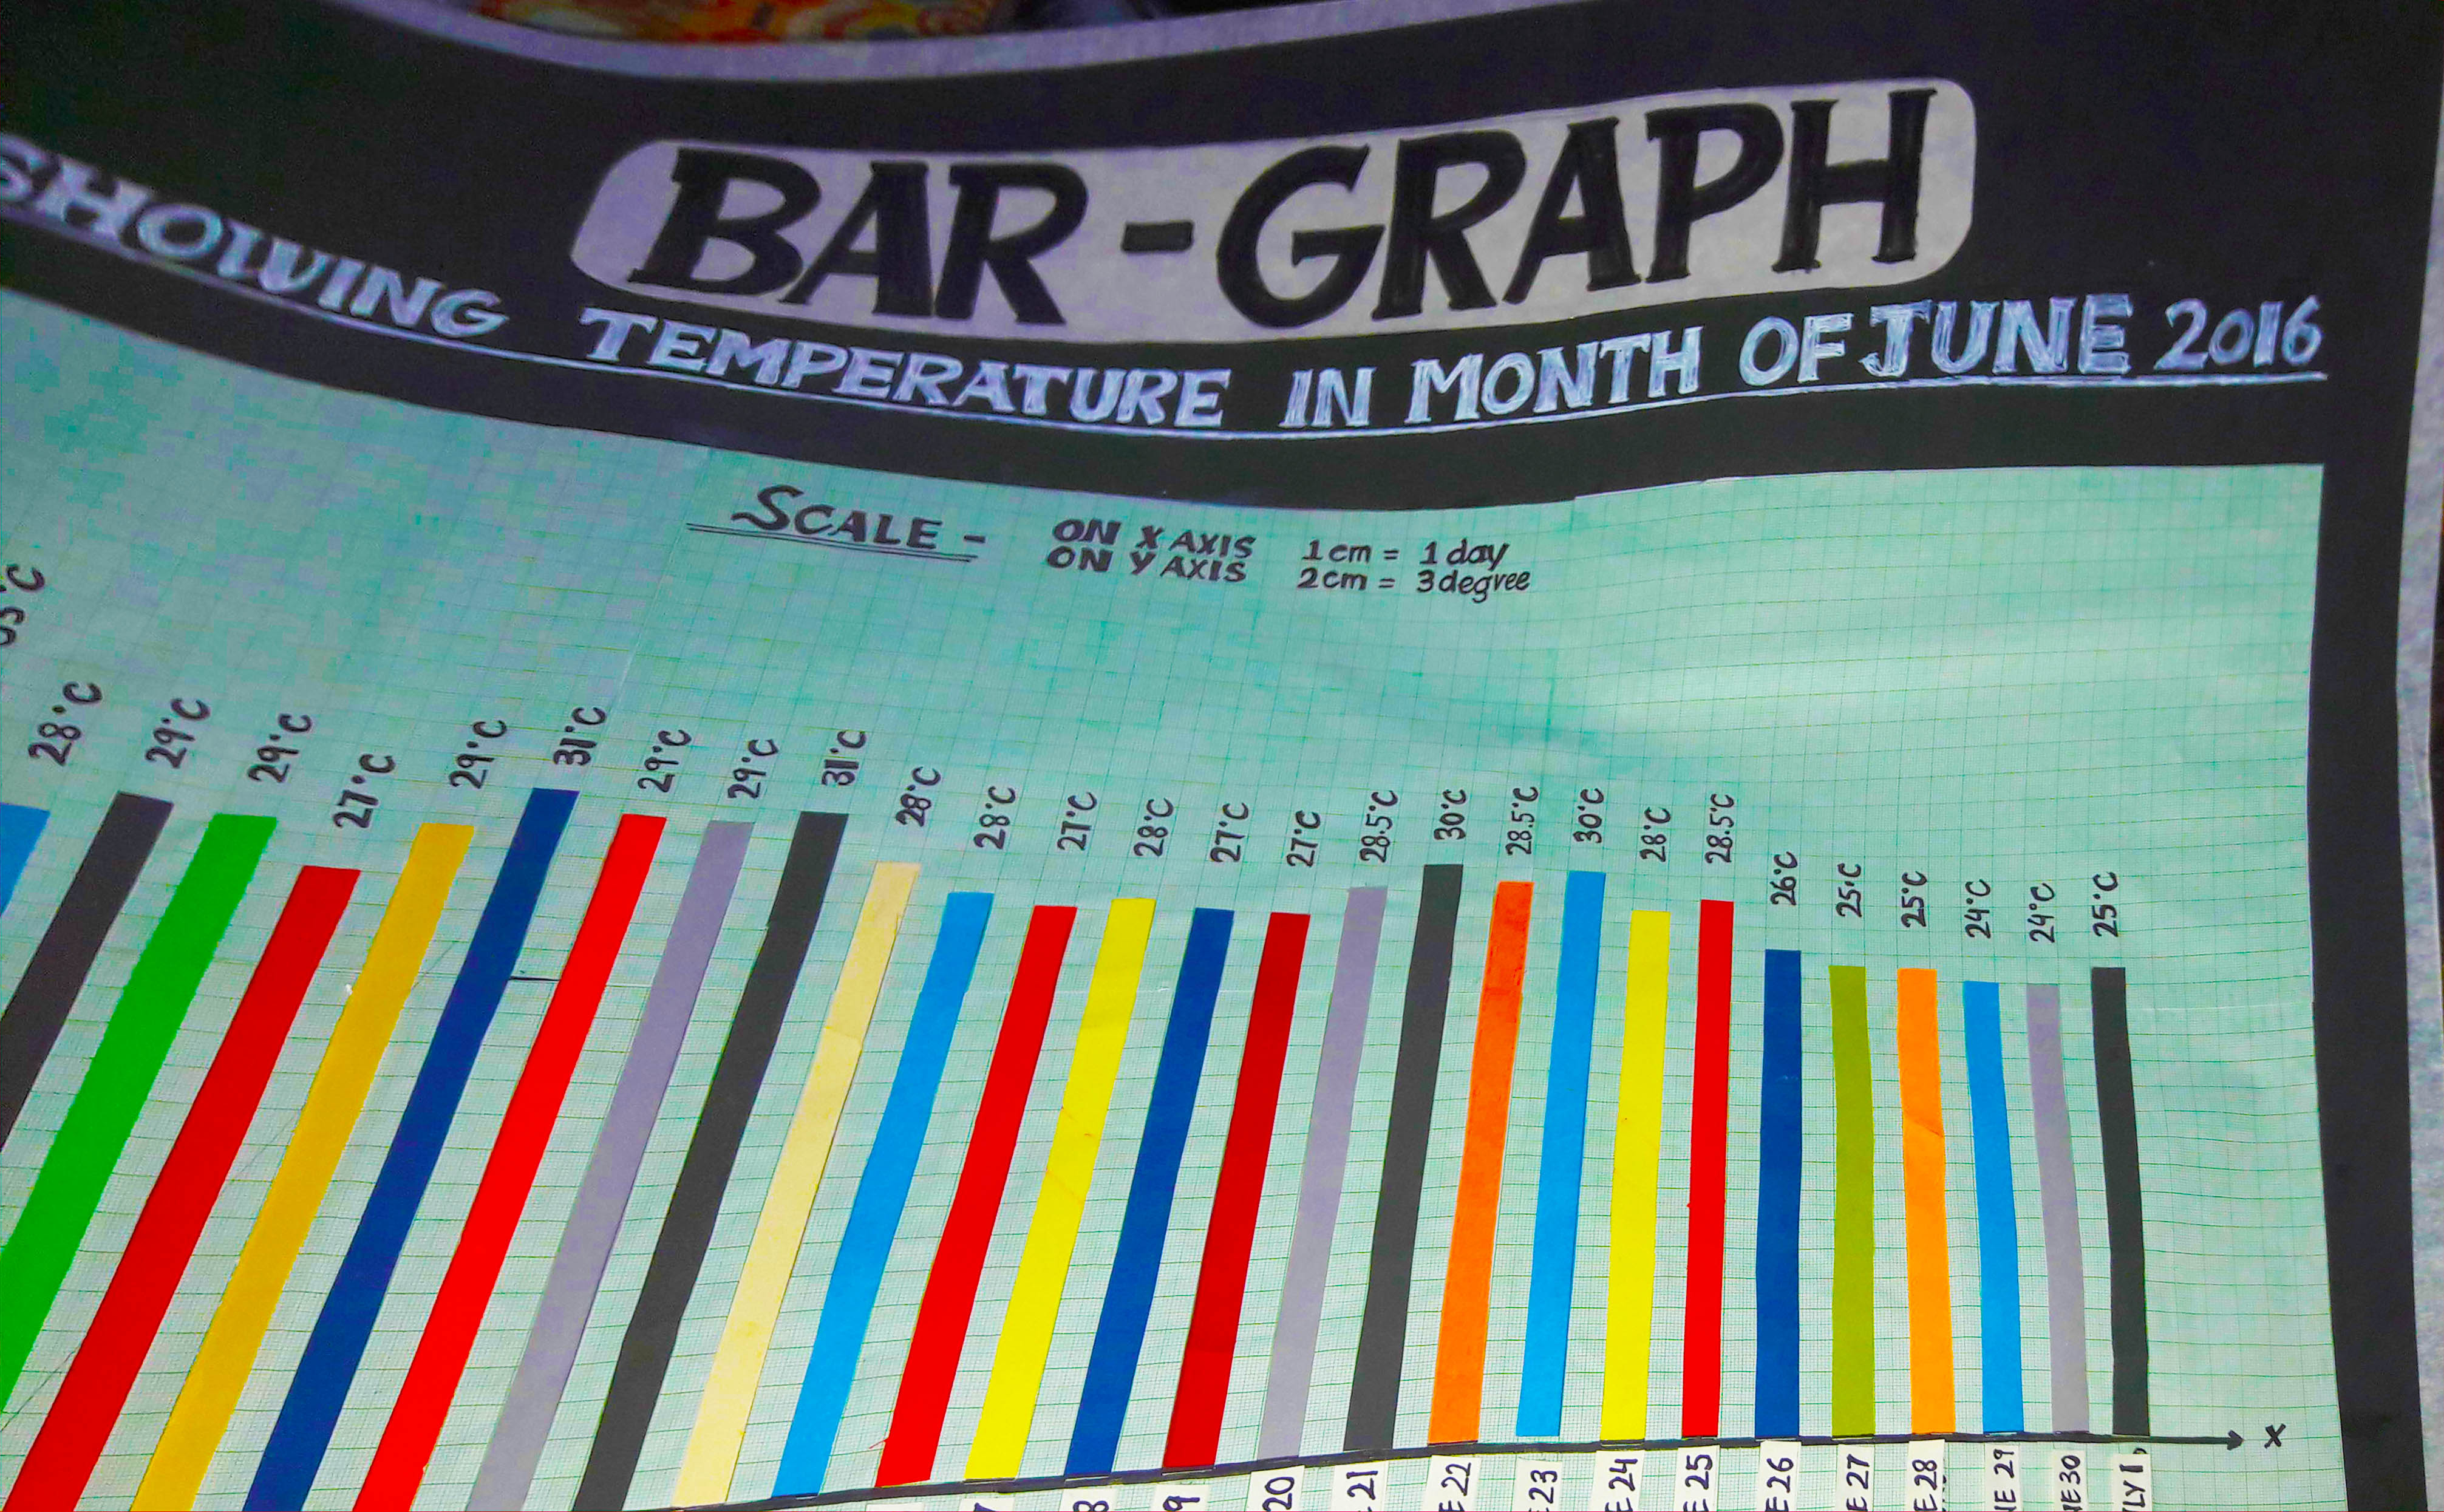 BAR-GRAPH
SHOWING TEMPERATURE IN MONTH OF JUNE 2016
SCALE - ON X AXIS 1cm = 1 day
ON Y AXIS 2cm = 3 degree
28°C
29°C
29°C
27°C
29°C
31°C
29°C
29°C
31°C
28°C
28°C
27°C
28°C
27°C
27°C
28.5°C
30°C
28.5°C
30°C
28°C
28.5°C
26°C
25°C
25°C
24°C
24°C
25°C
X
20
21
E 22
23
E 24
E 25
E 26
E 27
E 28
NE 29
NE 30
LY 1,